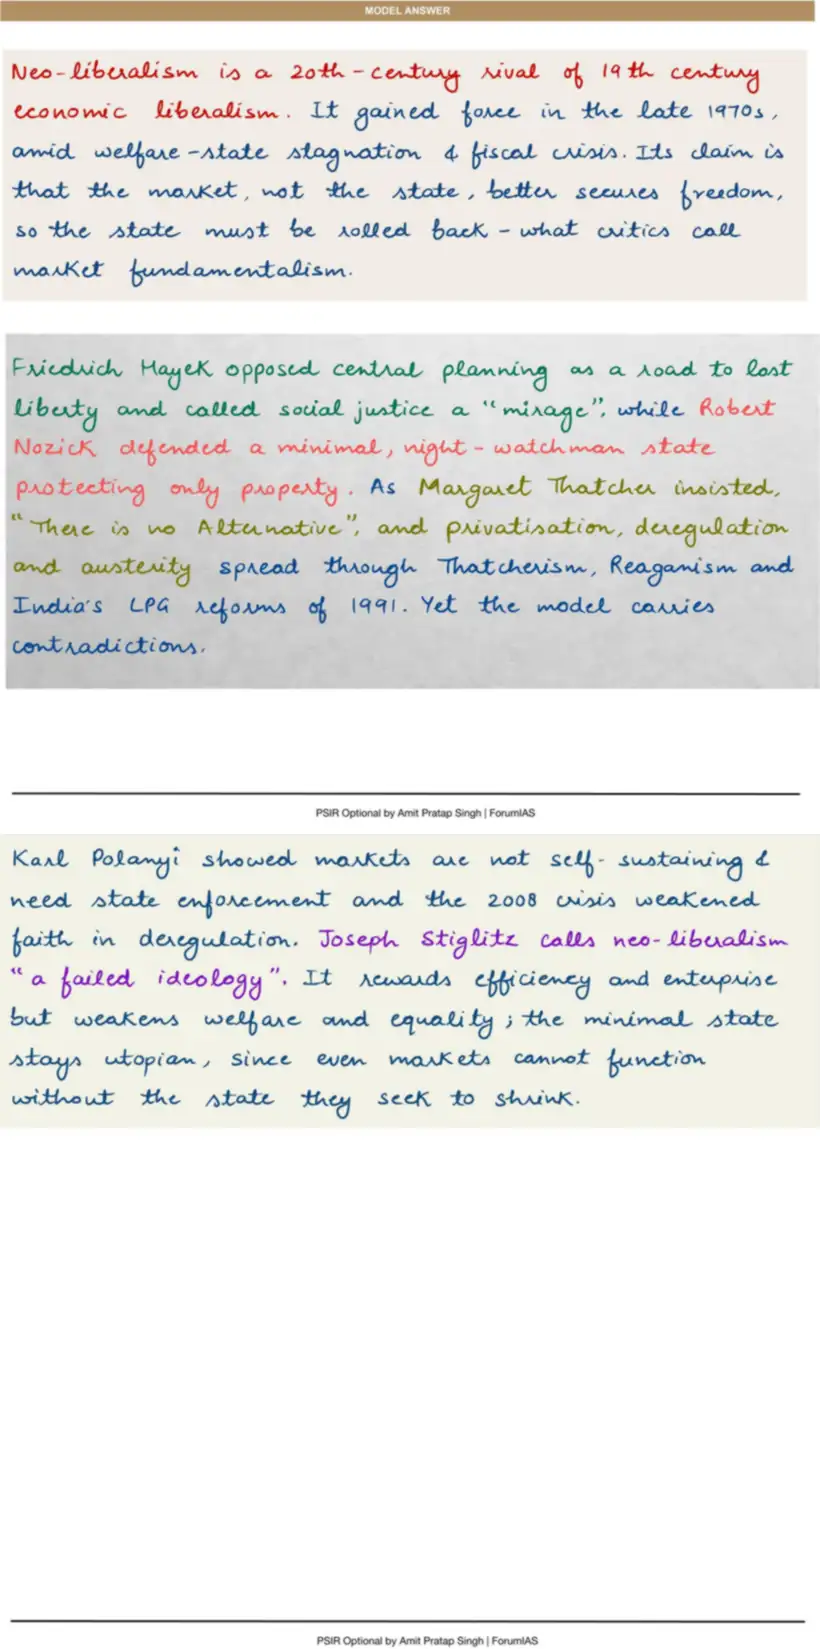 MODEL ANSWER
Neo-liberalism is a 20th-century rival of 19th century
economic liberalism. It gained force in the late 1970s,
amid welfare-state stagnation & fiscal crisis. Its claim is
that the market, not the state, better secures freedom,
so the state must be rolled back - what critics call
market fundamentalism.
Friedrich Hayek opposed central planning as a road to lost
liberty and called social justice a "mirage", while Robert
Nozick defended a minimal, night-watchman state
protecting only property. As Margaret Thatcher insisted,
"There is no Alternative", and privatisation, deregulation
and austerity spread through Thatcherism, Reaganism and
India's LPG reforms of 1991. Yet the model carries
contradictions.
PSIR Optional by Amit Pratap Singh | ForumIAS
Karl Polanyi showed markets are not self-sustaining &
need state enforcement and the 2008 crisis weakened
faith in deregulation. Joseph Stiglitz calls neo-liberalism
"a failed ideology". It rewards efficiency and enterprise
but weakens welfare and equality; the minimal state
stays utopian, since even markets cannot function
without the state they seek to shrink.
PSIR Optional by Amit Pratap Singh | ForumIAS